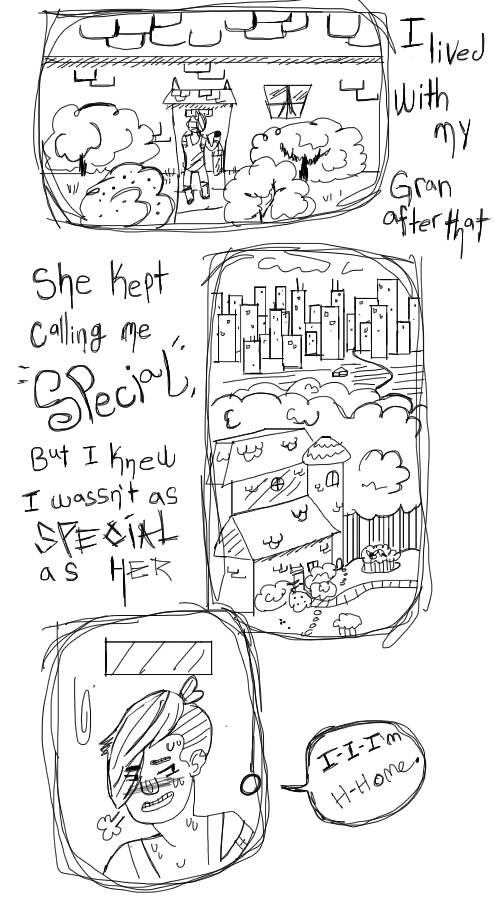 I lived
with
my
Gran
after that
She kept
calling me
SPecial
But I knew
I wassn't as
SPECIAL
as HER
I-I-I'm
H-Home.